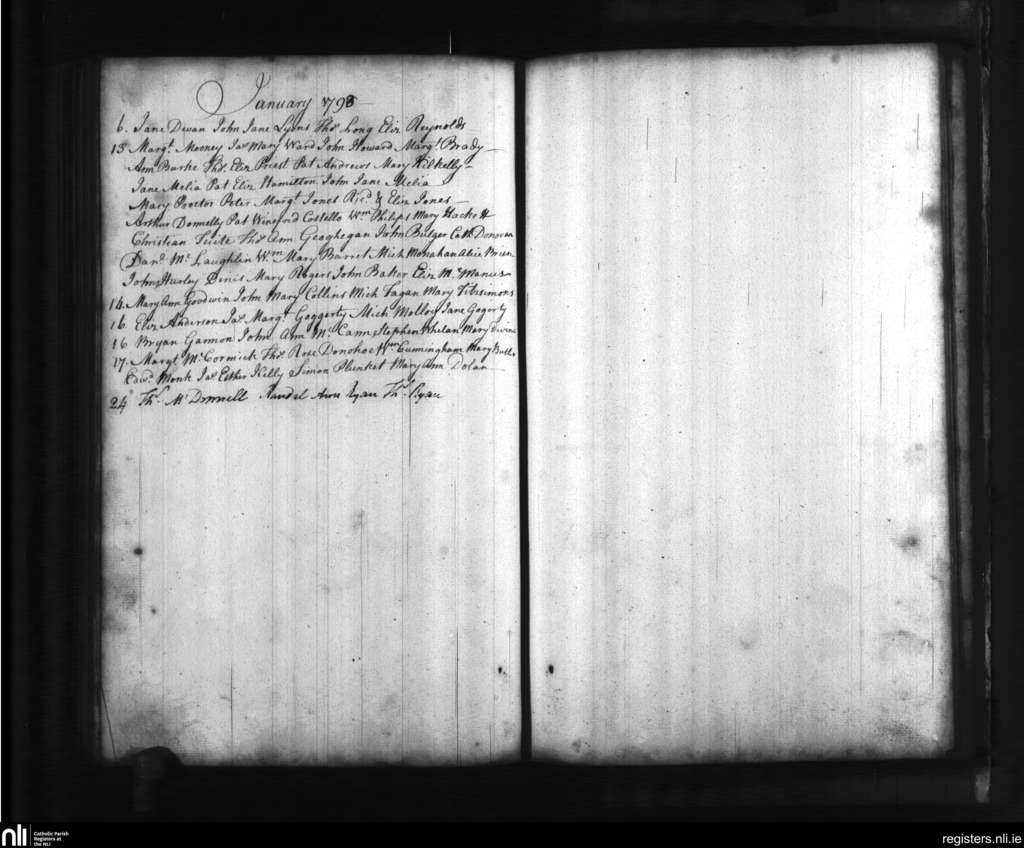 January 1798
6. Jane Dwan John Jane Lyons Thos. Long Eliz Reynolds
13 Margt. Meeney Jas Mary Ward John Howard Margt. Brady
Ann Burke Thos. Eliz Priest Pat Andrews Mary Kilkelly
Jane Melia Pat Eliz Hamilton John Jane Melia
Mary Proctor Peter Margt Jones Ricd & Eliz Jones
Arthur Donnelly Pat Winefrid Costello Wm Philips Mary
Christian Thos Ann Geoghegan John Bulger Cath Donovan
Danl. Mc Laughlin Wm Mary Barret Mich Monahan Alice Brien
John Hurley Denis Mary Rogers John Baker Eliz Mc Manus
14. Mary Ann Goodwin John Mary Collins Mich Fagan Mary Fitzsimons
16. Eliz Anderson Jas Margt Goggerty Mich Molloy Jane Gogerty
16 Bryan Gannon John Ann Mc Cann Stephen Whelan Mary
17. Margt Mc Cormick Thos Rose Donohoe Wm Cunningham Mary
Edwd. Monk Jas Esther Kelly Simon Plunket Mary Ann Dolan
24 Ths. Mc Donnell Randal Ann Ryan Ths. Ryan
nli
Catholic Parish
Registers at
the NLI
registers.nli.ie